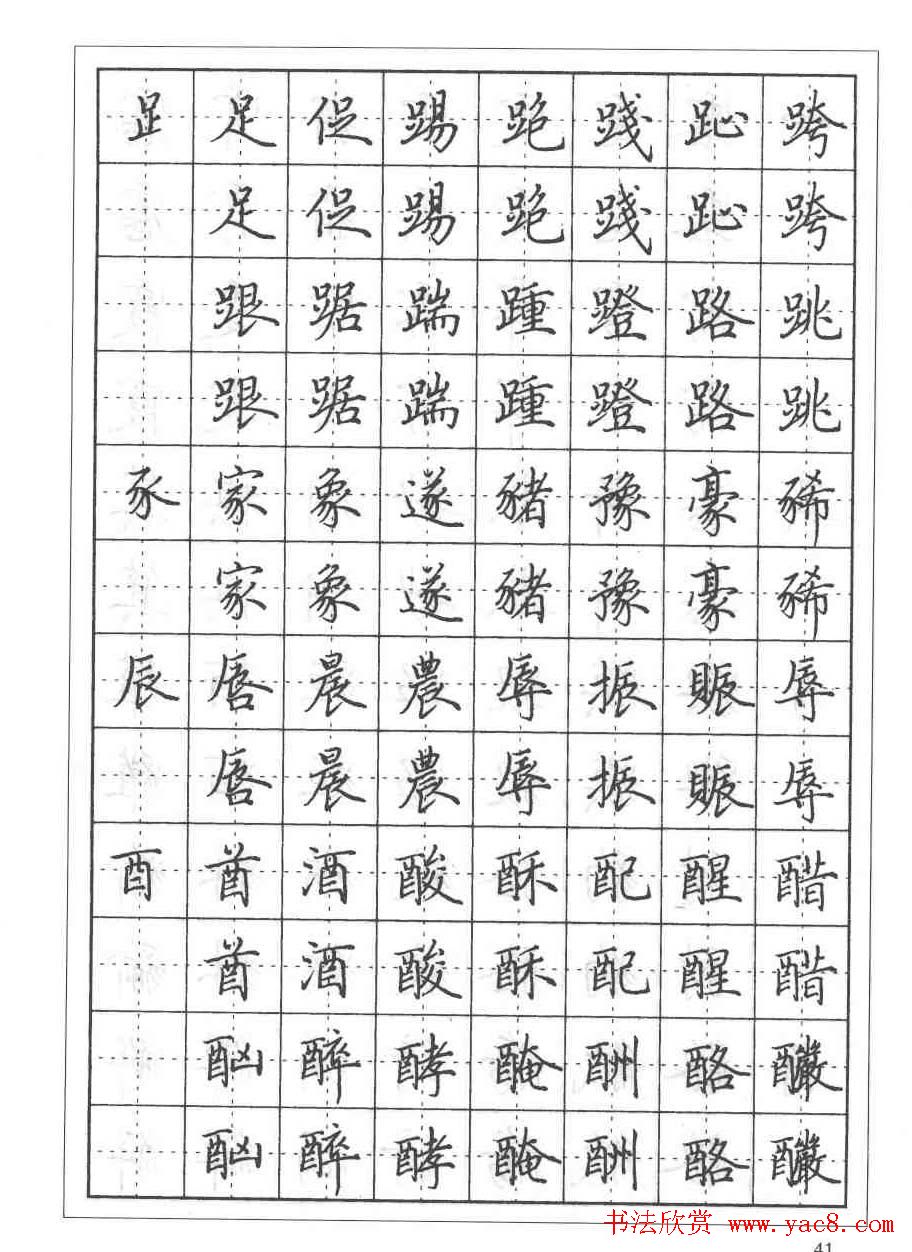 𧾷 足 促 踢 跑 踐 趾 跨
足 促 踢 跑 踐 趾 跨
跟 踞 踹 踵 蹬 路 跳
跟 踞 踹 踵 蹬 路 跳
豕 家 象 遂 豬 豫 豪 豨
家 象 遂 豬 豫 豪 豨
辰 唇 晨 農 辱 振 賑 辱
唇 晨 農 辱 振 賑 辱
酉 酋 酒 酸 酥 配 醒 醋
酋 酒 酸 酥 配 醒 醋
酗 醉 酵 醃 酬 酪 釅
酗 醉 酵 醃 酬 酪 釅
书法欣赏 www.yac8.com
41